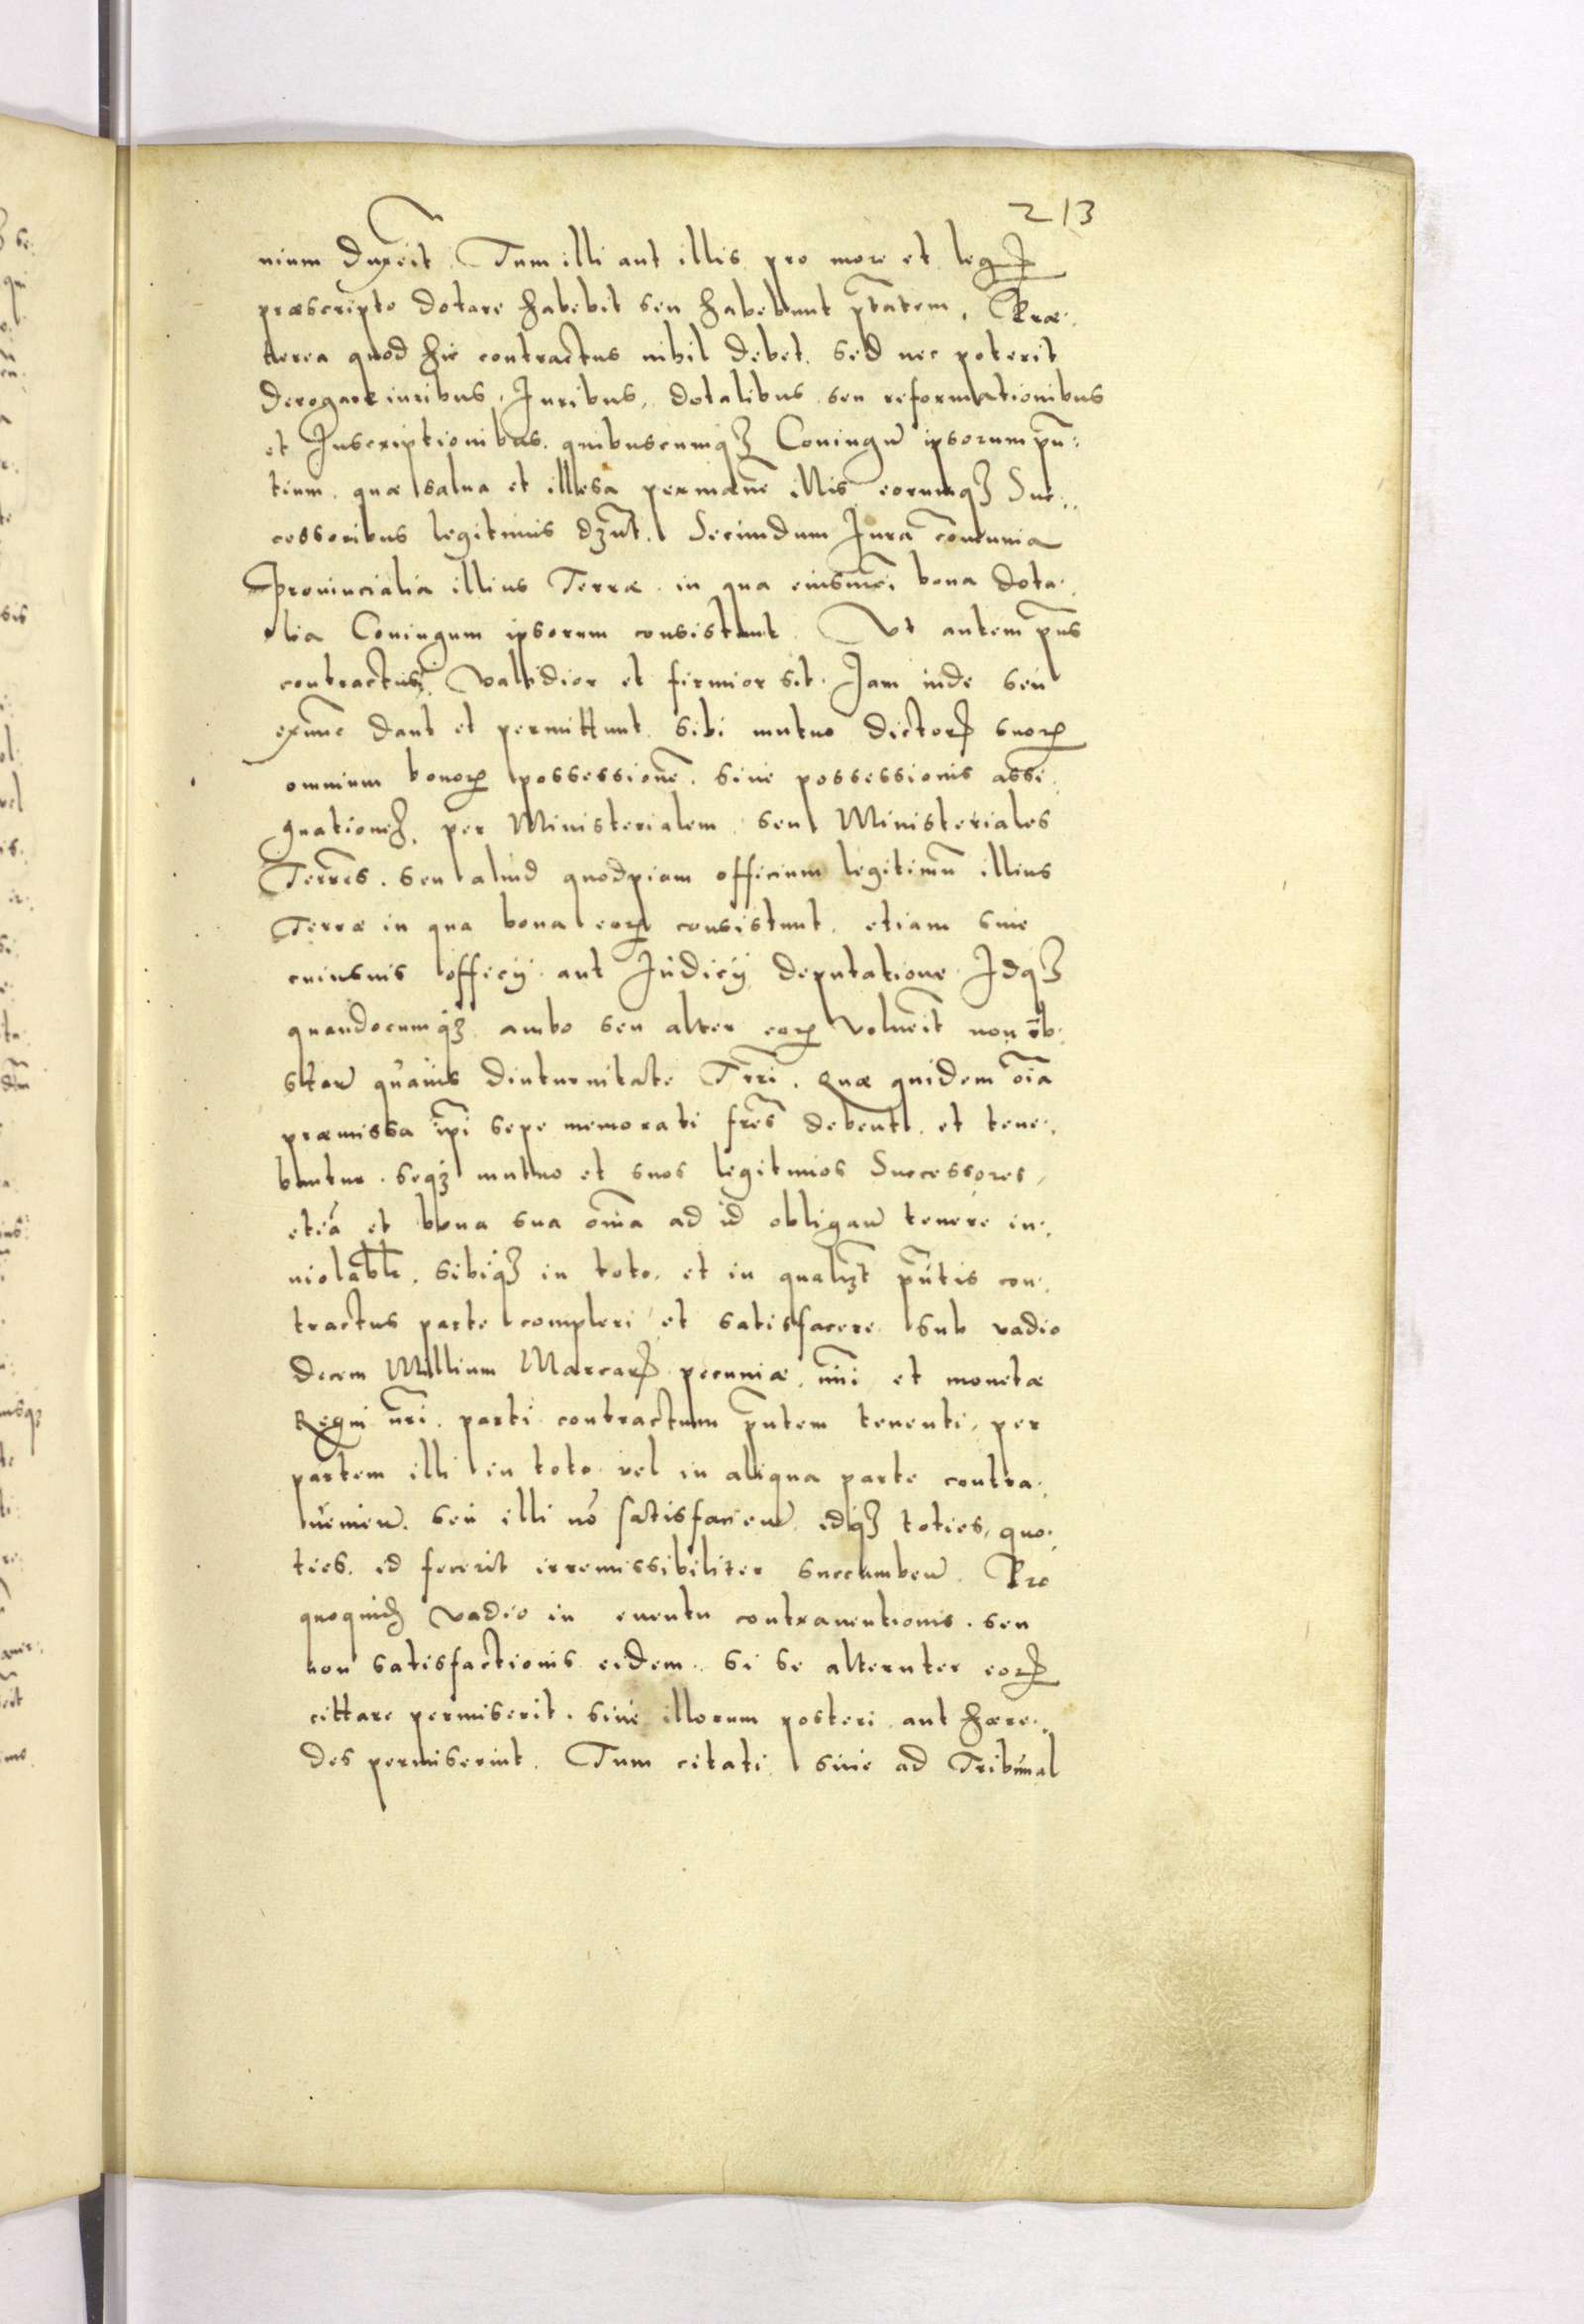 213
nium duxeit. Tum illi aut illis pro more et legũ
præscripto dotare habebit seu habebunt ptãtem, Præ.
terea quod hic contractus nihil debet. sed nec poterit
derogare iuribus, Juribus, dotalibus seu reformationibus
et Inscriptionibus. quibuscumqȝ Coniugũ ipsorum pñ:
tium. quæ salua et illesa permanẽ illis eorumqȝ Suc:
cessoribus legitimis dȝũt. Secundum Jura comunia
Prouincialia illius Terræ in qua eiusmõi bona dota.
lia Coniugum ipsorum consistunt. Vt autem pñs
contractus. validior et firmior sit. Jam inde seu
exnunc dant et permittunt sibi mutuo dictorꝝ suorꝝ
omnium bonorꝝ possessionẽ. siue possessionis assi.
gnationeȝ. per Ministerialem seu Ministeriales
Terrẽs. seu aliud quodpiam officium legitimũ illius
Terræ in qua bona eorꝝ consistunt. etiam sine
cuiusuis officij aut Judicij deputatione Jdqȝ
quandocumqȝ ambo seu alter eorꝝ voluerit non ob.
stan quauis diuturnitate Tr̃ri. Quæ quidem oĩa
præmissa ip̃i sepe memorati fr̃es debent. et tene.
buntur. seqȝ mutuo et suos legitimos Successores,
etiã et bona sua om̃ia ad id obligañ tenere in.
uiolabl̃r. sibiqȝ in toto. et in qualȝt pñtis con.
tractus parte compleri et satisfacere sub vadio
decem Millium Marcarꝝ pecuniæ. nũi et monetæ
Regni nr̃i. parti contractum pñtem tenenti, per
partem illi in toto vel in aliqua parte contra.
uenieñ. seu illi nõ satisfacieñ idqȝ toties, quo.
ties. id fecerit irremissibiliter succumbeñ. Pro
quoquidȝ vadio in euentu contrauentionis. seu
non satisfactionis eidem. si se alteruter eorꝝ
cittare permiserit. siue illorum posteri aut hære.
des permiserint. Tum citati siue ad Tribunal